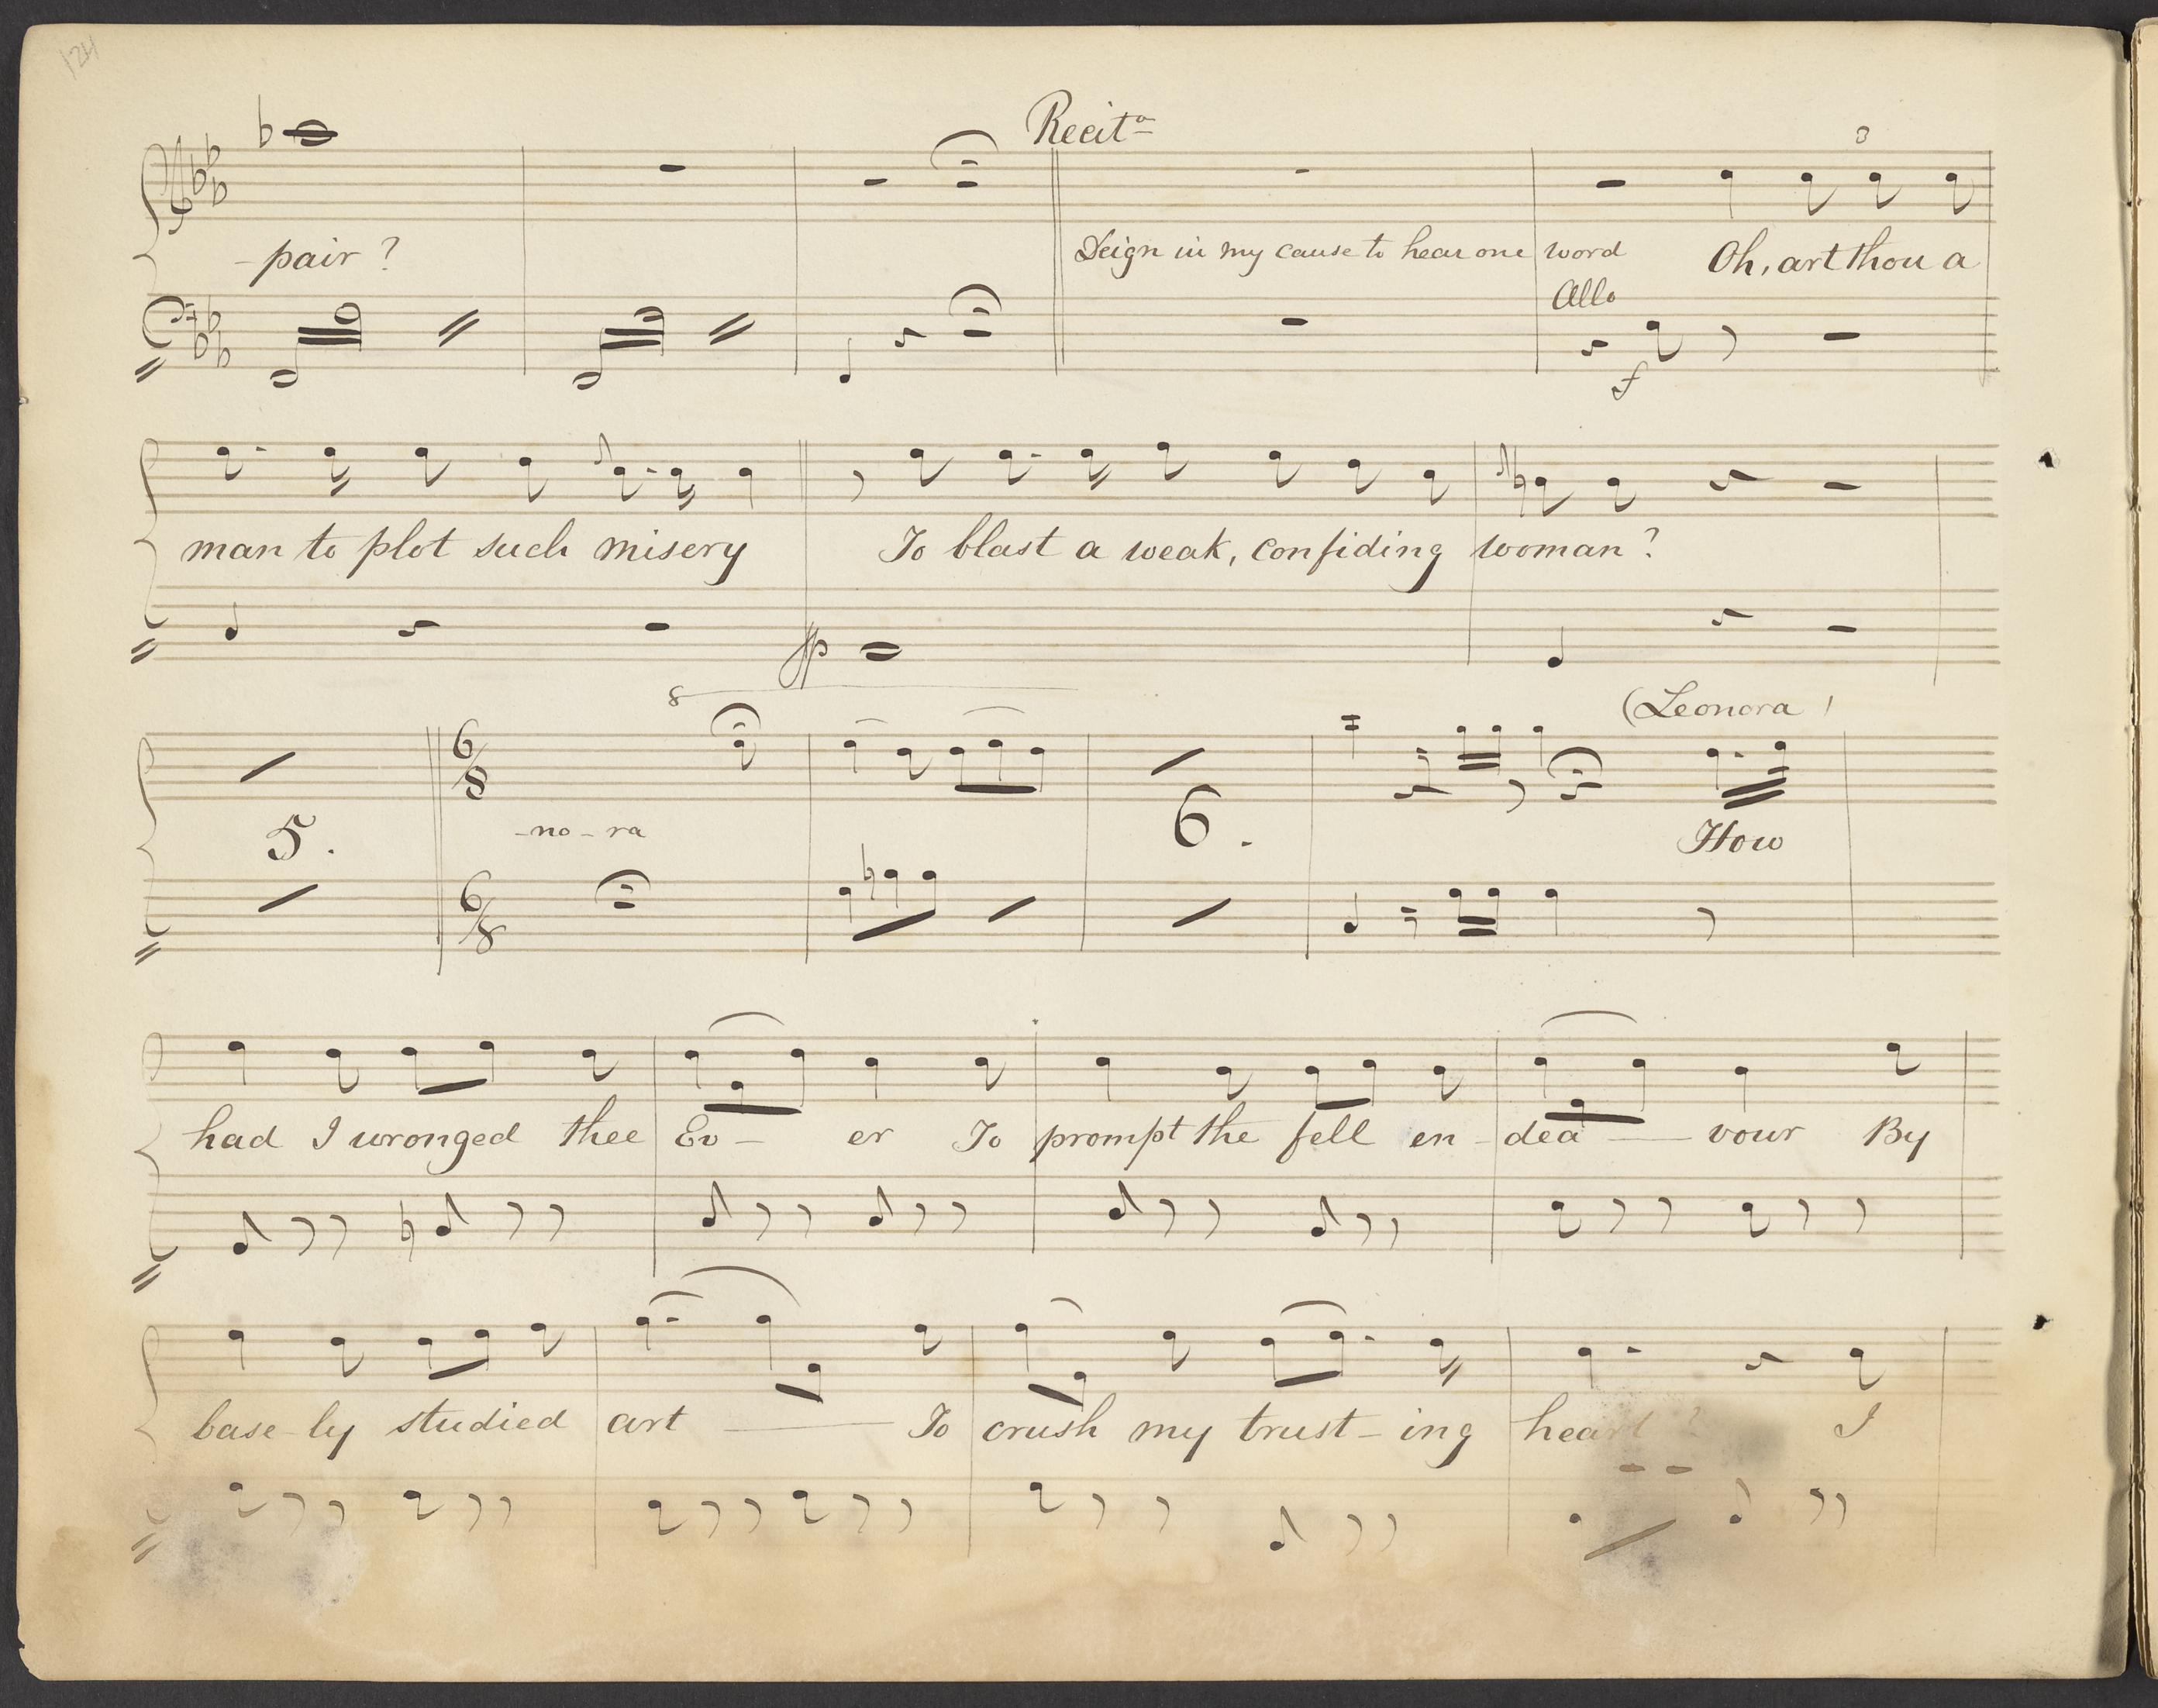 124
Recitº
-pair ?
Deign in my cause to hear one word Oh, art thou a
Allo
f
man to plot such misery To blast a weak, confiding woman ?
fp
8
(Leonora )
6/8
5. -no-ra 6. How
6/8
had I wronged thee Ev- er To prompt the fell en-dea - vour By
base-ly studied art - To crush my trust-ing heart ? I